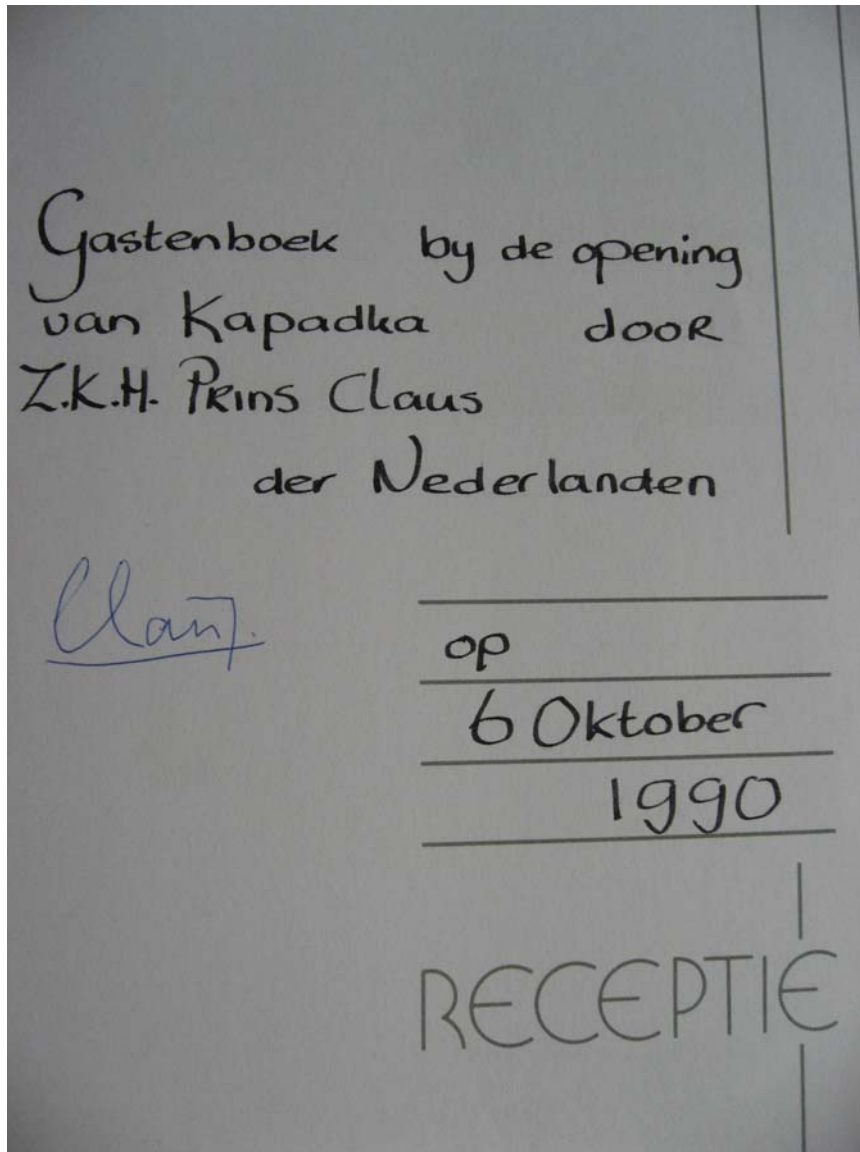 Gastenboek by de opening
van Kapadka door
Z.K.H. Prins Claus
der Nederlanden
Claus.
op
6 Oktober
1990
RECEPTIE